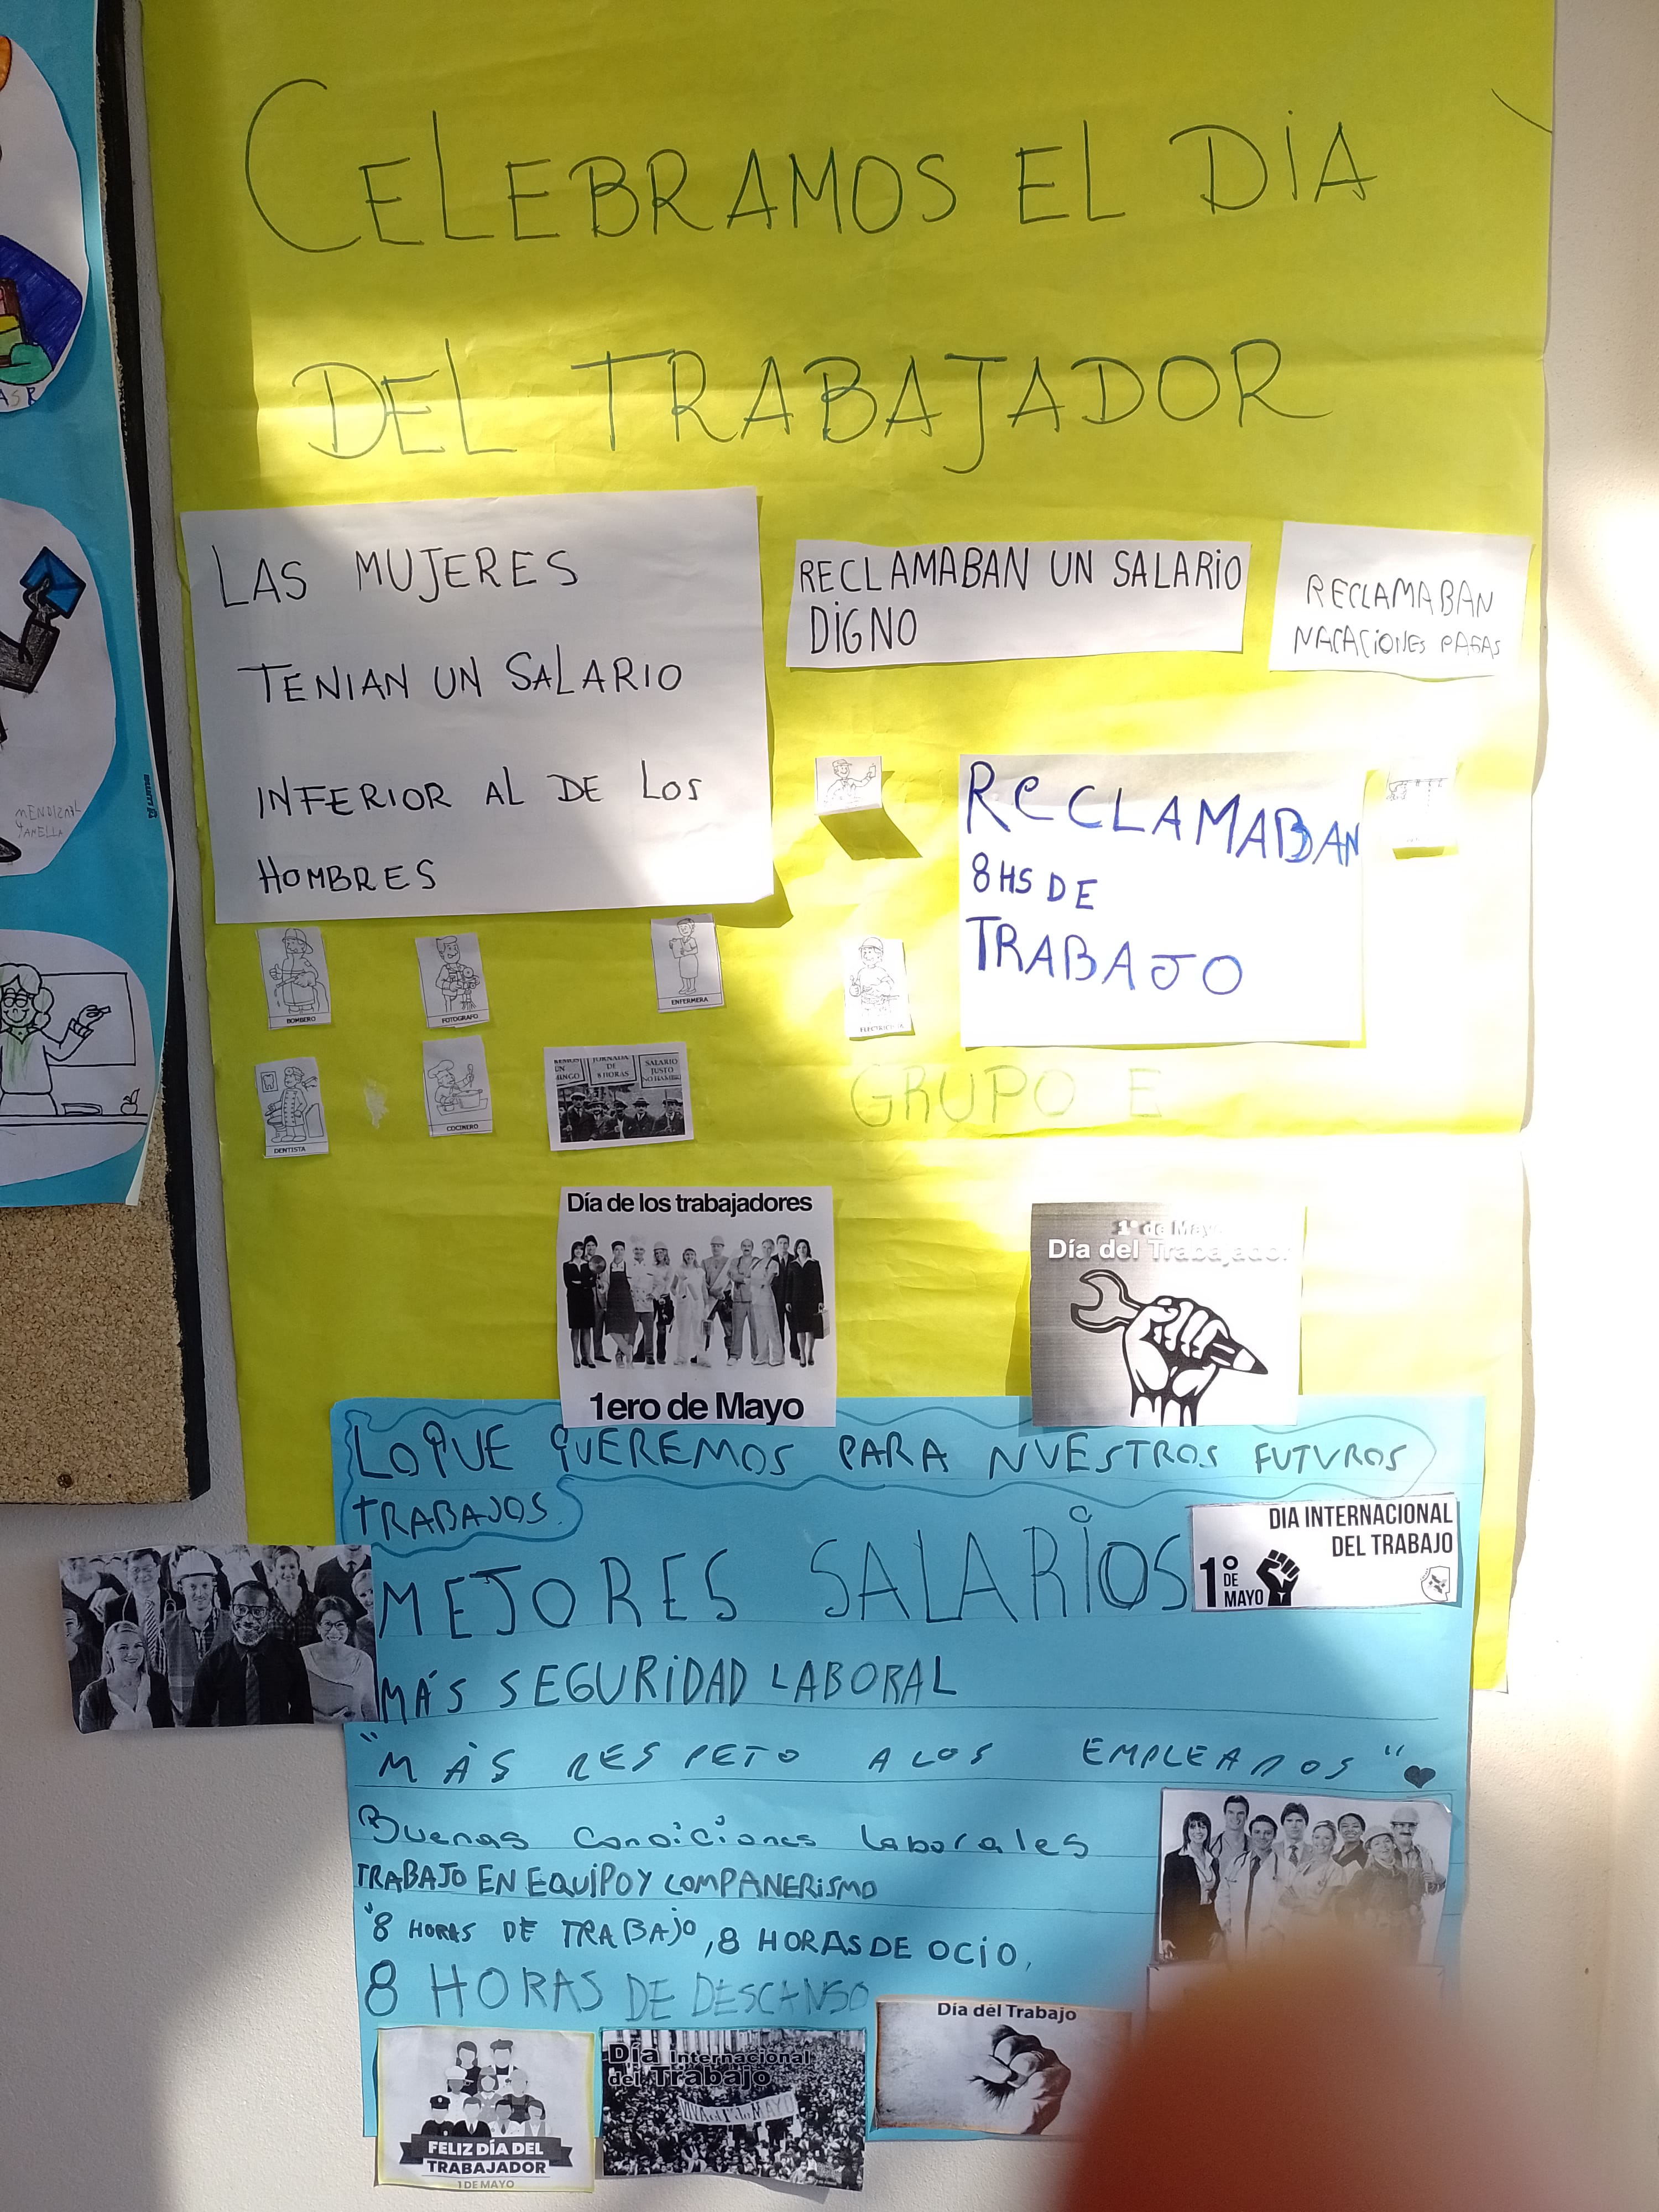 CELEBRAMOS EL DIA
DEL TRABAJADOR
LAS MUJERES
TENIAN UN SALARIO
INFERIOR AL DE LOS
HOMBRES
RECLAMABAN UN SALARIO
DIGNO
RECLAMABAN
NACACIONES PAGAS
RECLAMABAN
8 HS DE
TRABAJO
BOMBERO
FOTOGRAFO
ENFERMERA
ELECTRICISTA
DENTISTA
COCINERO
UN
JORNADA
DE
8 HORAS
SALARIO
JUSTO
NO HAMBRE
GRUPO E
Día de los trabajadores
1ero de Mayo
1º de Mayo
Día del Trabajador
LO QUE QUEREMOS PARA NUESTROS FUTUROS
TRABAJOS.
MEJORES SALARIOS
DIA INTERNACIONAL
DEL TRABAJO
1º
DE
MAYO
MÁS SEGURIDAD LABORAL
"MÁS RESPETO A LOS EMPLEADOS"
Buenas Condiciones laborales
TRABAJO EN EQUIPO Y COMPANERISMO
"8 HORAS DE TRABAJO, 8 HORAS DE OCIO,
8 HORAS DE DESCANSO
FELIZ DÍA DEL
TRABAJADOR
1 DE MAYO
Día Internacional
del Trabajo
VIVA el 1º de MAYO
Día del Trabajo
MENDIZABAL
YAMELLA